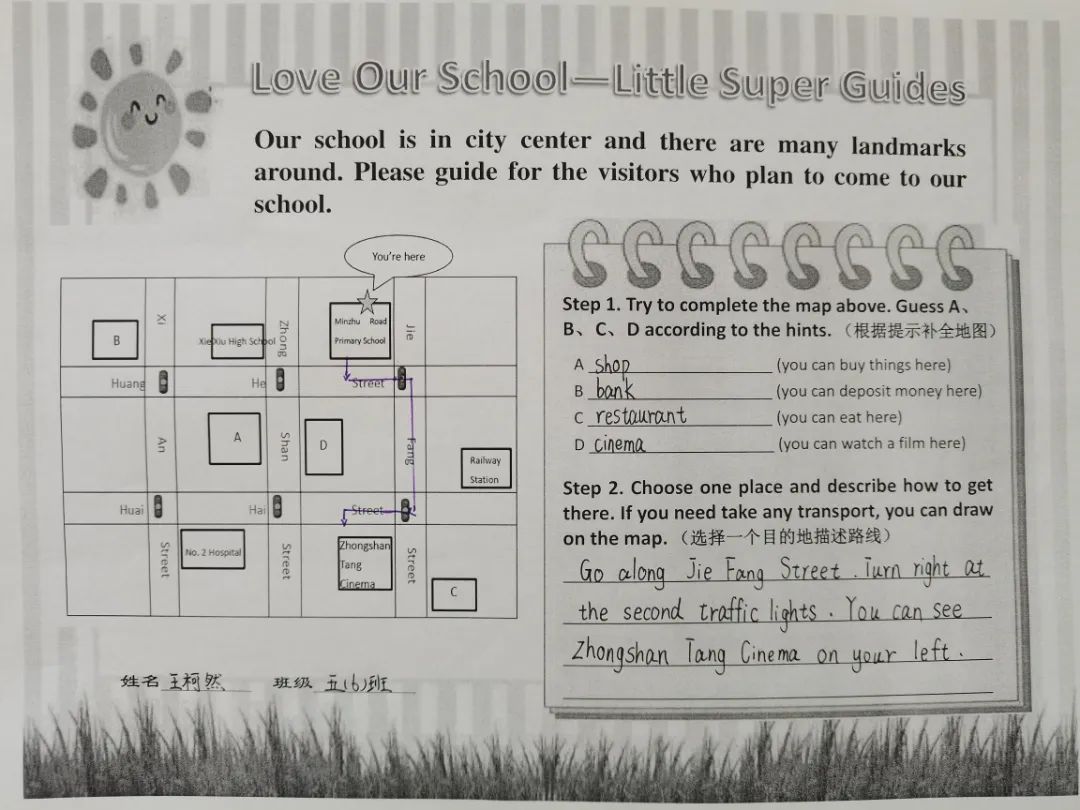 Love Our School—Little Super Guides
Our school is in city center and there are many landmarks
around. Please guide for the visitors who plan to come to our
school.
You're here
B
Xi
Xie Xiu High School
Zhong
Minzhu Road
Primary School
Jie
Huang
He
Street
An
A
Shan
D
Fang
Railway
Station
Huai
Hai
Street
Street
No. 2 Hospital
Street
Zhongshan
Tang
Cinema
Street
C
姓名 王柯然 班级 五(6)班
Step 1. Try to complete the map above. Guess A、
B、C、D according to the hints.（根据提示补全地图）
A shop (you can buy things here)
B bank (you can deposit money here)
C restaurant (you can eat here)
D cinema (you can watch a film here)
Step 2. Choose one place and describe how to get
there. If you need take any transport, you can draw
on the map.（选择一个目的地描述路线）
Go along Jie Fang Street. Turn right at
the second traffic lights. You can see
Zhongshan Tang Cinema on your left.